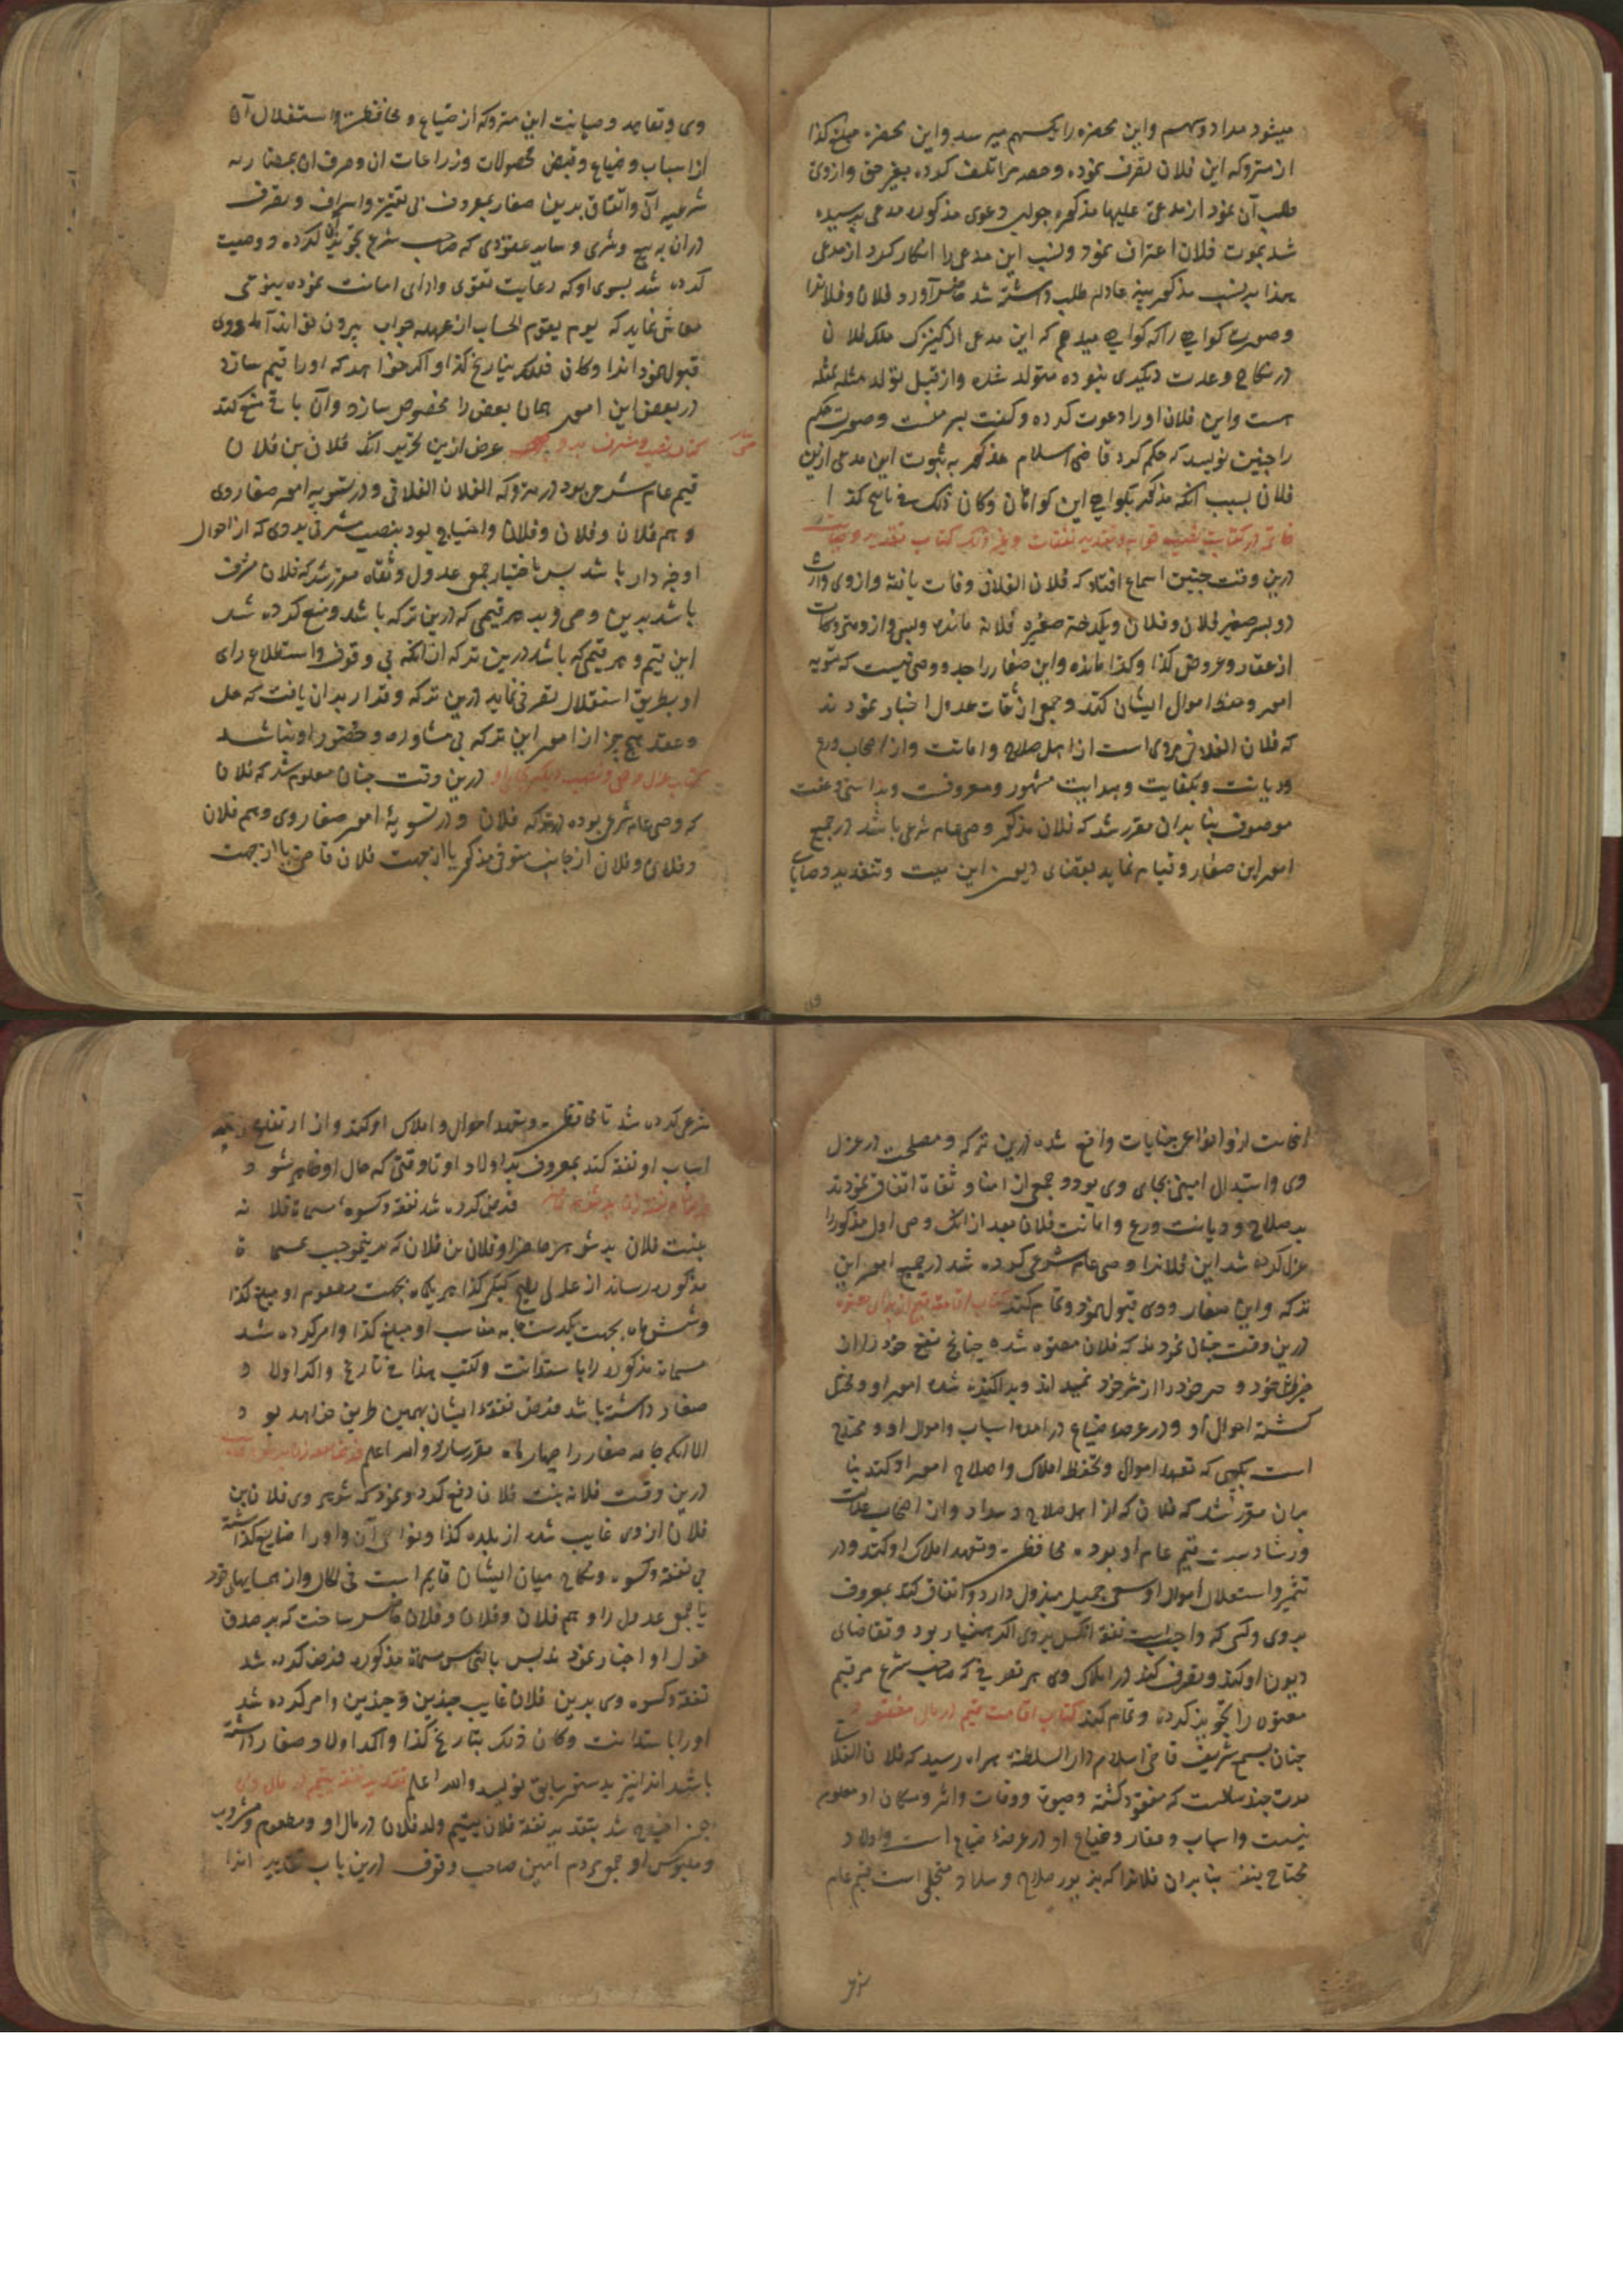 میشود مر او دو سهم و این محضره را یکسهم میرسد و این محضره مبلغ کذا
از متروکه این فلان تصرف نموده و حصه مرا تلف کرده بغیر حق و از وی
طلب آن نمود از مدعی علیها مذکوره جواب دعوی مذکوره مدعی پرسیده
شد بموت فلان اعتراف نمود و نسب این مدعی را انکار کرد از مدعی
هذا بر نسب مذکور بینه عادله طلب داشته شد حاضر آورد فلان و فلانرا
و صورت کواهی را که کواهی میدهم که این مدعی از کنیزک ملک فلان
در نکاح و عدت دیکری نبوده متولد شده و از قبیل تولد مثله لمثله
است و این فلان او را دعوت کرده و کفت پسر منست و صورت حکم
را چنین نویسد که حکم کرد قاضی اسلام مذکور به ثبوت این مدعی ازین
فلان بسبب آنکه مذکور بکواهی این کواهان و کان ذلک فی تاریخ کذا
خاتمه در کتابت نصب قوام و تقدیر نفقات و غیر ذلک کتاب تقدیر وصایت
درین وقت چنین استماع افتاد که فلان الفلانی وفات یافته و از وی وارث
دو پسر صغیر فلان و فلان و یکدختر صغیره فلانه مانده و پس از و متروکات
از عقار و عروض کذا و کذا مانده و این صغار را جد و وصی نیست که تسویه
امور و حفظ اموال ایشان کند و جمعی از ثقات عدول اخبار نمودند
که فلان الفلانی مردی است از اهل صلاح و امانت و از اصحاب ورع
و دیانت و بکفایت و هدایت مشهور و معروف و براستی و عفت
موصوف بنا بدان مقرر شد که فلان مذکور وصی عام شرعی باشد در جمیع
امور این صغار و قیام نماید بقضای دیون این میت و تنفیذ وصایای
وی و تعاهد و صیانت این متروکه از ضیاع و محافظت و استغلال آن
از اسباب و ضیاع و قبض محصولات و زراعات آن و صرف آن بمصارف
شرعیه آن و انفاق برین صغار بمعروف بی تقتیر و اسراف و تصرف
در آن به بیع و شری و سایر عقودی که صاحب شرع تجویز آن کرده و وصیت
کرده شد بسوی او که رعایت تقوی و ادای امانت نموده بنوعی
معاش نماید که یوم یقوم الحساب از عهده جواب بیرون تواند آمد و وی
قبول نمود اینرا و کان ذلک بتاریخ کذا و اکر خواهد که او را قیم سازد
در بعض این امور همان بعض را مخصوص سازد و آن باقی منع کند
کتاب نصب مشرف بر وصی غرض ازین تحریر آنک فلان بن فلان
قیم عام شرعی بود در متروکه الفلان الفلانی و در تسویه امور صغار وی
و هم فلان و فلان و فلان و احتیاج بود بنصب مشرفی بر وی که از احوال
او خبر دار باشد پس باختیار جمعی عدول و ثقات مقرر شد که فلان مشرف
باشد برین وصی و بر هر قیمی که درین ترکه باشد و منع کرده شد
این قیم و هر قیمی که باشد درین ترکه از آنکه بی وقوف و استطلاع رای
او بطریق استقلال تصرفی نماید درین ترکه و قرار بدان یافت که حل
و عقد هیچ جز از امور این ترکه بی مشاوره و حضور او نباشد
کتاب عزل وصی و نصب دیکر بجای او درین وقت چنان معلوم شد که فلان
که وصی عام شرعی بوده در ترکه فلان و در تسویهٔ امور صغار وی و هم فلان
و فلان و فلان از جانب متوفی مذکور یا از جهت فلان قاضی یا از جهت
از و انواع جنایات واقع شده درین ترکه و مصلحت در عزل
وی و استبدال امینی بجای وی بود و جمعی از امنا و ثقات اتفاق نمودند
بر صلاح و دیانت و ورع و امانت فلان بعد از آنک وصی اول مذکور را
عزل کرده شد این فلانرا وصی عام شرعی کرده شد در جمیع امور این
ترکه و این صغار و وی قبول نمود و تمام کند کتاب اقامت قیم از برای معتوه
درین وقت چنان نمودند که فلان معتوه شده چنانچ نفع خود را از
ضرر خود و خیر خود را از شر خود نمیداند و پراکنده شده امور او و مختل
کشته احوال او و در عرصه ضیاع در آمده اسباب و اموال او و محتاج
است بکسی که تعهد اموال و تحفظ املاک و اصلاح امور او کند بنا
بران مقرر شد که فلان که از اهل صلاح و سداد و از اصحاب عدالت
و رشاد است قیم عام او بوده محافظت و تعهد املاک او کند و در
تثمیر و استغلال اموال او سعی جمیل مبذول دارد و انفاق کند بمعروف
بر وی و کسی که واجب است نفقه آنکس بر وی اکر هشیار بود و تقاضای
دیون او کند و تصرف کند در املاک وی هر تصرفی که صاحب شرع مر قیم
معتوه را تجویز کرده و تمام کند کتاب اقامت قیم در مال مفقود
چنان بسمع شریف قاضی اسلام دار السلطنه هراه رسید که فلان الفلانی
مدت چند سالست که مفقود کشته و حیوت و وفات و اثر و مکان او معلوم
نیست و اسباب و عقار و ضیاع او در عرضه ضیاع است و اولاد
محتاج بنفقه بنا بران فلانرا که بزیور صلاح و سداد متحلی است قیم عام
شرعی کرده شد تا محافظت و تعهد احوال و املاک او کند و از ارتفاع
اسباب او نفقه کند بمعروف بر اولاد او تا وقتی که حال او ظاهر شود
فرض کرده شد نفقه و کسوه مسماة فلانه
بنت فلان بر شوهر حاضر او فلان بن فلان که بموجب مسماة
مذکوره رساند از بجهت مطعوم او مبلغ کذا
و شش ماه بجهت یکدست جامه مناسب او مبلغ کذا و امر کرده شد
مسماة مذکوره را باستدانت و کتب هذا فی تاریخ و اکر اولاد
صغار داشته باشد فرض نفقه ایشان بهمین طریق خواهد بود
الا آنکه جامه صغار را چهار ماه مقرر سازد والله اعلم
درین وقت فلانه بنت فلان رفع کرد و نمود که شوهر وی فلان بن
فلان از وی غایب شده از بلده کذا و نواحی آن و او را ضایع کذاشته
بی نفقه و کسوه و نکاح میان ایشان قایم است فی الحال و از همسایهای خود
با جمعی عدول را و هم فلان و فلان و فلان حاضر ساخت که بر صدق
قول او اخبار نمودند پس بالتماس مسماة مذکوره فرض کرده شد
نفقه و کسوه وی برین فلان غایب چندین و چندین و امر کرده شد
او را باستدانت و کان ذلک بتاریخ کذا و اکر اولاد صغار داشته
باشد آنرا نیز بدستور سابق نویسد والله اعلم تقدیر نفقه یتیم در مال وی
چون احتیاج شد بتقدیر نفقه فلان یتیم ولد فلان در مال او و مطعوم و مشروب
و ملبوس او جمعی مردم امین صاحب وقوف درین باب تقدیر آنرا